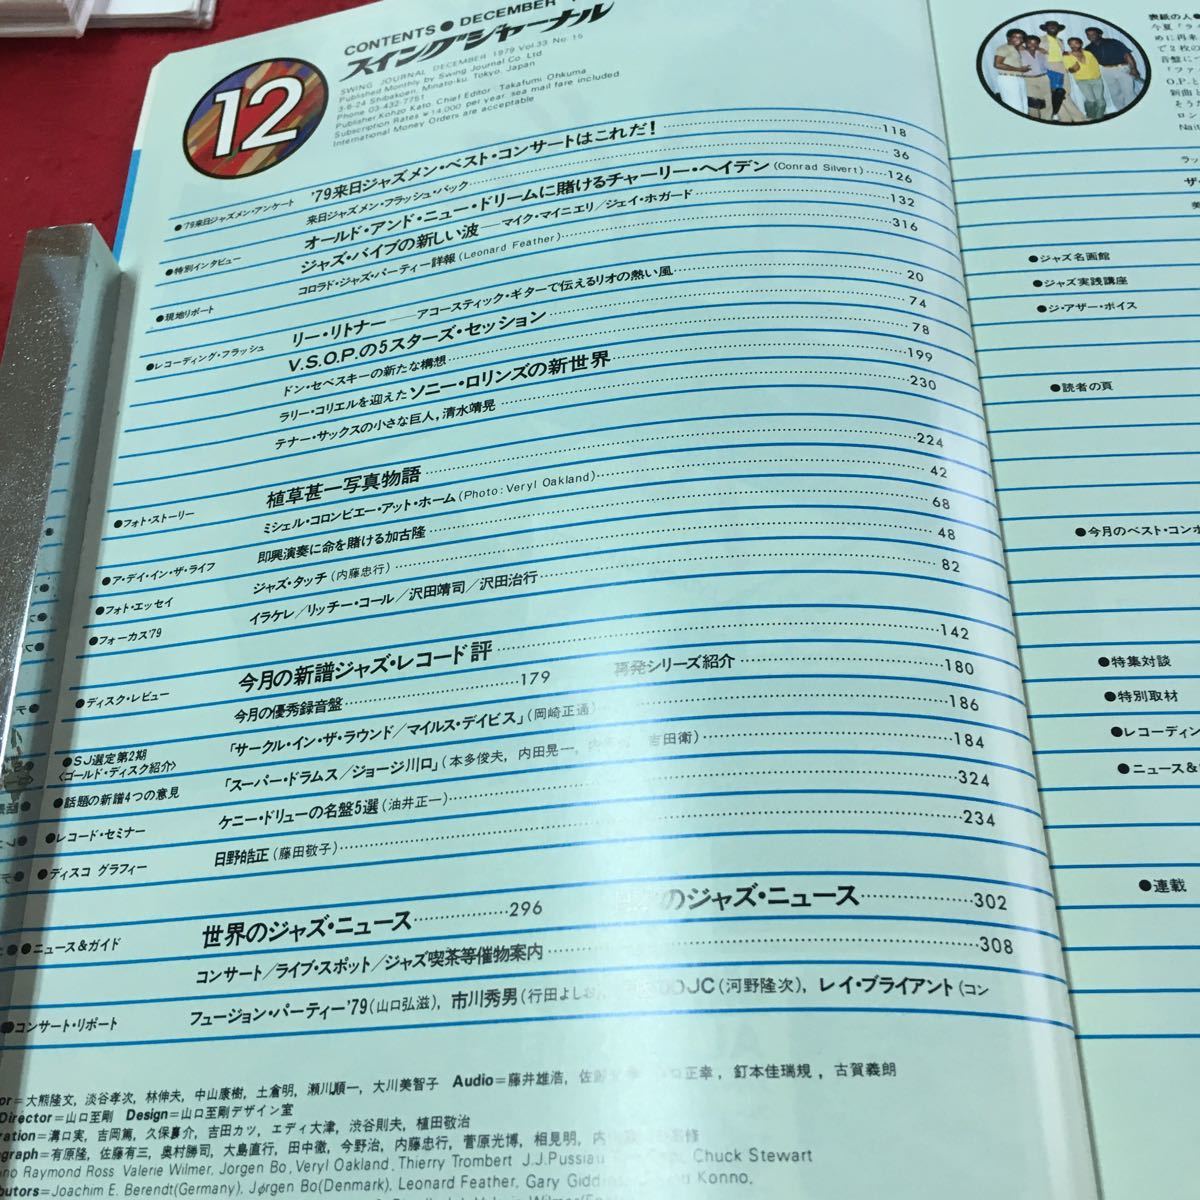 CONTENTS●DECEMBER
スイングジャーナル
12
SWING JOURNAL DECEMBER 1979 Vol.33 No.15
Published Monthly by Swing Journal Co. Ltd
3-6-24 Shibakoen, Minato-ku, Tokyo, Japan
Phone 03-432-7751
Publisher Kohzo Kato. Chief Editor : Takafumi Ohkuma
Subscription Rates ¥14,000 per year, sea mail fare included
International Money Orders are acceptable
●'79来日ジャズメン・アンケート '79来日ジャズメン・ベスト・コンサートはこれだ! 118
来日ジャズメン・フラッシュ・バック 36
●特別インタビュー オールド・アンド・ニュー・ドリームに賭けるチャーリー・ヘイデン(Conrad Silvert) 126
ジャズ・バイブの新しい波―マイク・マイニエリ/ジェイ・ホガード 132
●現地リポート コロラド・ジャズ・パーティー詳報(Leonard Feather) 316
●レコーディング・フラッシュ リー・リトナー―アコースティック・ギターで伝えるリオの熱い風 20
V.S.O.P.の5スターズ・セッション 74
ドン・セベスキーの新たな構想 78
ラリー・コリエルを迎えたソニー・ロリンズの新世界 199
テナー・サックスの小さな巨人,清水靖晃 230
●フォト・ストーリー 植草甚一写真物語 224
●ア・デイ・イン・ザ・ライフ ミシェル・コロンビエー・アット・ホーム(Photo:Veryl Oakland) 42
即興演奏に命を賭ける加古隆 68
●フォト・エッセイ ジャズ・タッチ(内藤忠行) 48
●フォーカス'79 イラケレ/リッチー・コール/沢田靖司/沢田治行 82
●ディスク・レビュー 今月の新譜ジャズ・レコード評 142
今月の優秀録音盤 179 再発シリーズ紹介 180
●SJ選定第2期
〈ゴールド・ディスク紹介〉 「サークル・イン・ザ・ラウンド/マイルス・デイビス」(岡崎正通) 186
●話題の新譜4つの意見 「スーパー・ドラムス/ジョージ川口」(本多俊夫, 内田晃一, 吉田衛) 184
●レコード・セミナー ケニー・ドリューの名盤5選(油井正一) 324
●ディスコ グラフィー 日野皓正(藤田敬子) 234
●ニュース&ガイド 世界のジャズ・ニュース 296 のジャズ・ニュース 302
コンサート/ライブ・スポット/ジャズ喫茶等催物案内 308
●コンサート・リポート フュージョン・パーティー'79(山口弘滋), 市川秀男(行田よしお), JC(河野隆次), レイ・ブライアント(コン
or=大熊隆文, 淡谷孝次, 林伸夫, 中山康樹, 土倉明, 瀬川順一, 大川美智子 Audio=藤井雄浩, 正幸, 釘本佳瑞規, 古賀義朗
Director=山口至剛 Design=山口至剛デザイン室
ration=溝口実, 吉岡篤, 久保喜介, 吉田カツ, エディ大津, 渋谷則夫, 植田敬治
graph=有原隆, 佐藤有三, 奥村勝司, 大島直行, 田中徹, 今野治, 内藤忠行, 菅原光博, 相見明,
Raymond Ross Valerie Wilmer, Jorgen Bo, Veryl Oakland, Thierry Trombert J.J.Pussiau Chuck Stewart
butors=Joachim E. Berendt(Germany), Jørgen Bo(Denmark), Leonard Feather, Gary Konno,
表紙の人●
今夏「ラ
めに再来
で2枚の
音盤に
「ファ
O.P.と
新曲と
そう
ロン
Na
●ジャズ名画館
●ジャズ実践講座
●ジ・アザー・ボイス
●読者の頁
●今月のベスト・コンポ
●特集対談
●特別取材
●レコーディン
●ニュース&
●連載